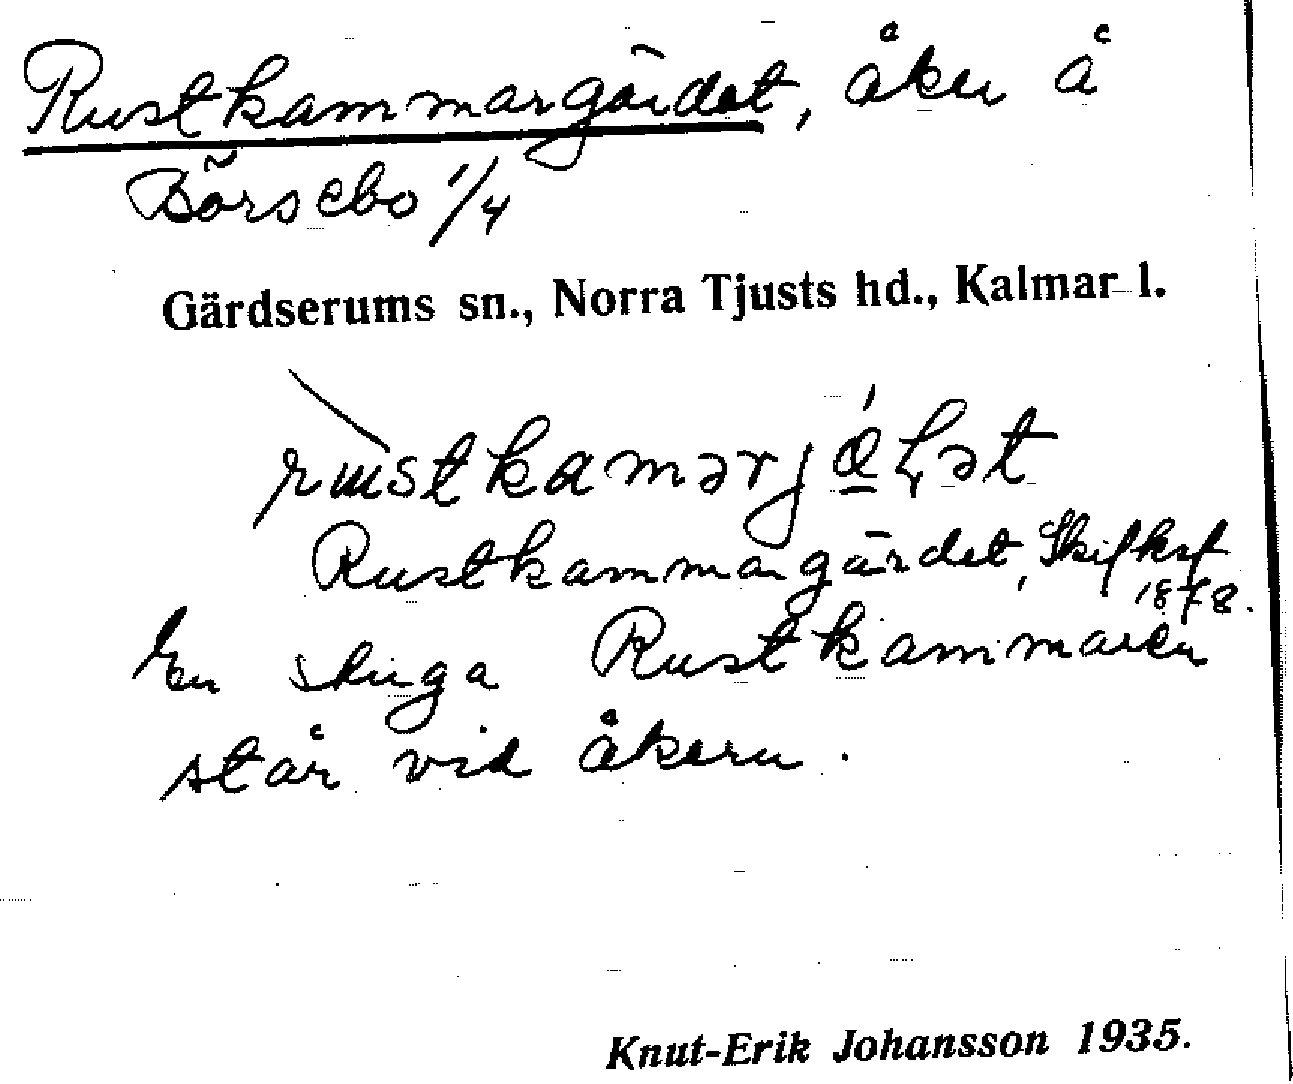 Rustkammargärdet, åker å
Börsebo 1/4
Gärdserums sn., Norra Tjusts hd., Kalmar l.
Rustkammargärdet, Skifksf
1878.
En stuga Rustkammaren
står vid åkern.
Knut-Erik Johansson 1935.